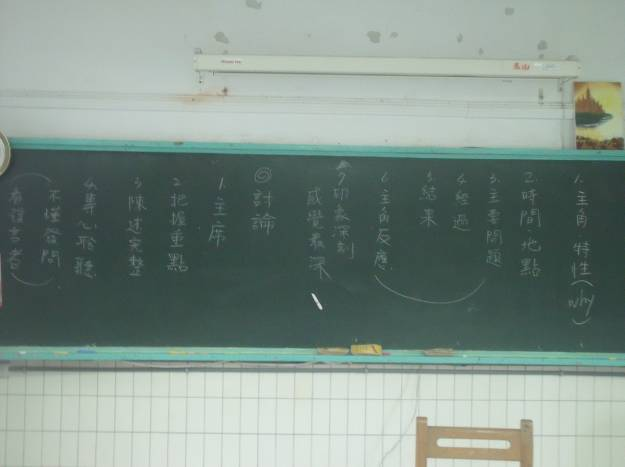 1.主角 特性(why)
2.時間 地點
3.主要問題
4.經過
5.結果
6.主角反應
7.印象深刻
感覺最深
◎討論
1.主席
2.把握重點
3.陳述完整
4.專心聆聽
不懂發問